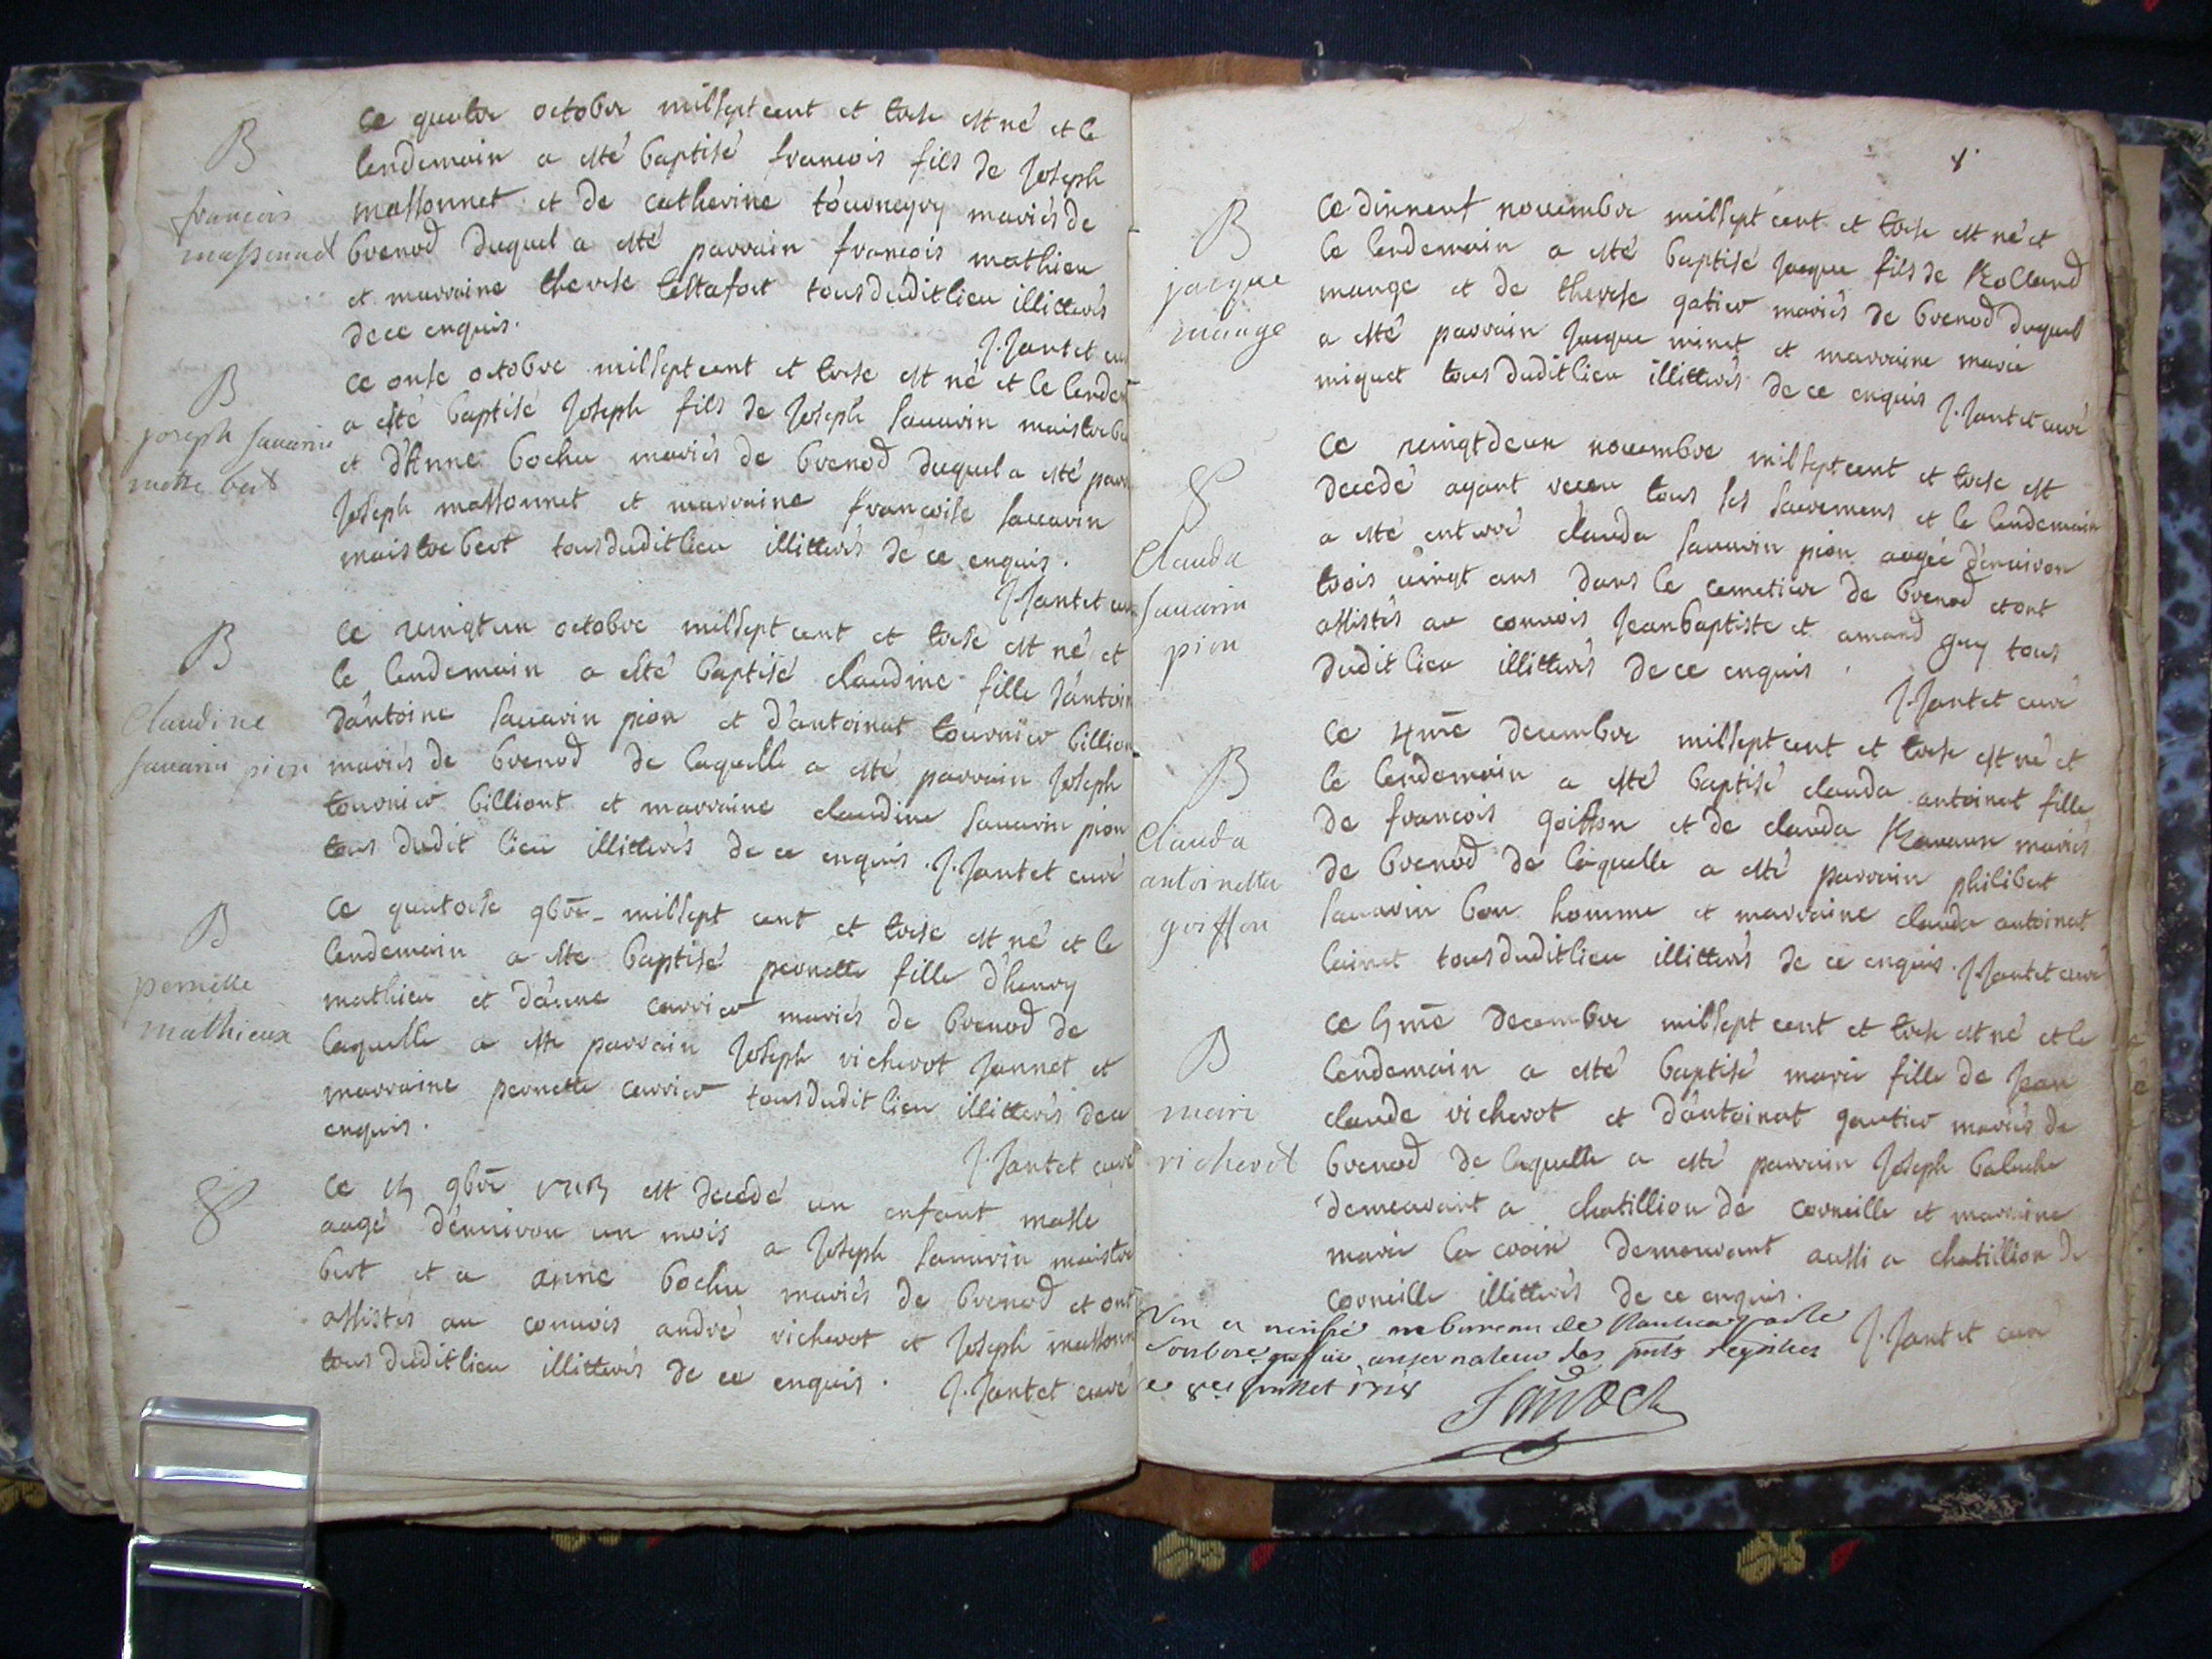 B
francois
massonnet
ce quatre octobre mil sept cent et trese est né et le
lendemain a esté baptisé francois fils de Joseph
massonnet et de catherine tourneyry mariés de
brenod duquel a esté parrain francois mathieu
et marraine therese testafort tous dudit lieu illitterés
de ce enquis.
J. Jantet cu
B
joseph sauarin
metre bert
ce onse octobre mil sept cent et trese est né et le lende
a esté baptisé Joseph fils de Joseph sauarin maistre be
et d'Anne bochu mariés de brenod duquel a esté parr
Joseph massonnet et marraine francoise sauarin
maistre bert tous dudit lieu illitterés de ce enquis.
J. Jantet cu
B
Claudine
sauarin pion
ce vingt un octobre mil sept cent et trese est né et
le lendemain a esté baptisé claudine fille d'antoin
d'antoine sauarin pion et d'antoinat tournier billion
mariés de brenod de laquelle a esté parrain Joseph
tournier billiont et marraine claudine sauarin pion
tous dudit lieu illitterés de ce enquis. J. Jantet curé
B
pernette
mathieux
ce quatorse 9bre mil sept cent et trese est né et le
lendemain a este baptisé pernette fille d'henry
mathieu et d'anne carrier mariés de brenod de
laquelle a este parrain Joseph vicherot Jannet et
marraine pernette carrier tous dudit lieu illitterés de ce
enquis.
J. Jantet curé
ce 15 9bre 1713 est decedé un enfant masle
aagé d'enuiron un mois a Joseph sauarin maistre
bert et a anne bochu mariés de brenod et ont
assistés au conuois andré vicherot et Joseph massonn
tous dudit lieu illitterés de ce enquis. J. Jantet curé
8
B
jacque
mange
ce dixneuf nouembre mil sept cent et trese est né et
le lendemain a esté baptisé Jacque fils de Rolland
mange et de therese gatier mariés de brenod duquel
a esté parrain Jacque minet et marraine marie
miquet tous dudit lieu illitterés de ce enquis J. Jantet curé
Clauda
sauarin
pion
ce vingtdeux nouembre mil sept cent et trese est
decedé ayant receu tous ses sacremens et le lendemain
a esté enterré clauda sauarin pion aagée d'enuiron
trois vingt ans dans le cemetiere de brenod et ont
assistés au conuois Jean baptiste et amand guy tous
dudit lieu illitterés de ce enquis.
J. Jantet curé
B
Clauda
antoinette
goiffon
ce 4me decembre mil sept cent et trese est né et
le lendemain a esté baptisé clauda antoinat fille
de francois goiffon et de clauda Rauaux mariés
de brenod de laquelle a esté parrain philibert
sauarin bon homme et marraine clauda antoinat
tous dudit lieu illitterés de ce enquis. J. Jantet curé
B
mari
vicherot
ce 5me decembre mil sept cent et trese est né et le
lendemain a esté baptisé marie fille de Jean
claude vicherot et d'antoinat gautier mariés de
brenod de laquelle a esté parrain Joseph baluche
demeurant a chatillion de corneille et marraine
marie la croix demeurant aussi a chatillion de
corneille illitterés de ce enquis.
J. Jantet cure
Veu et verifié au bureau de Nantua par le
greffier conseruateur des pnts registres
le 8e Juillet 1718